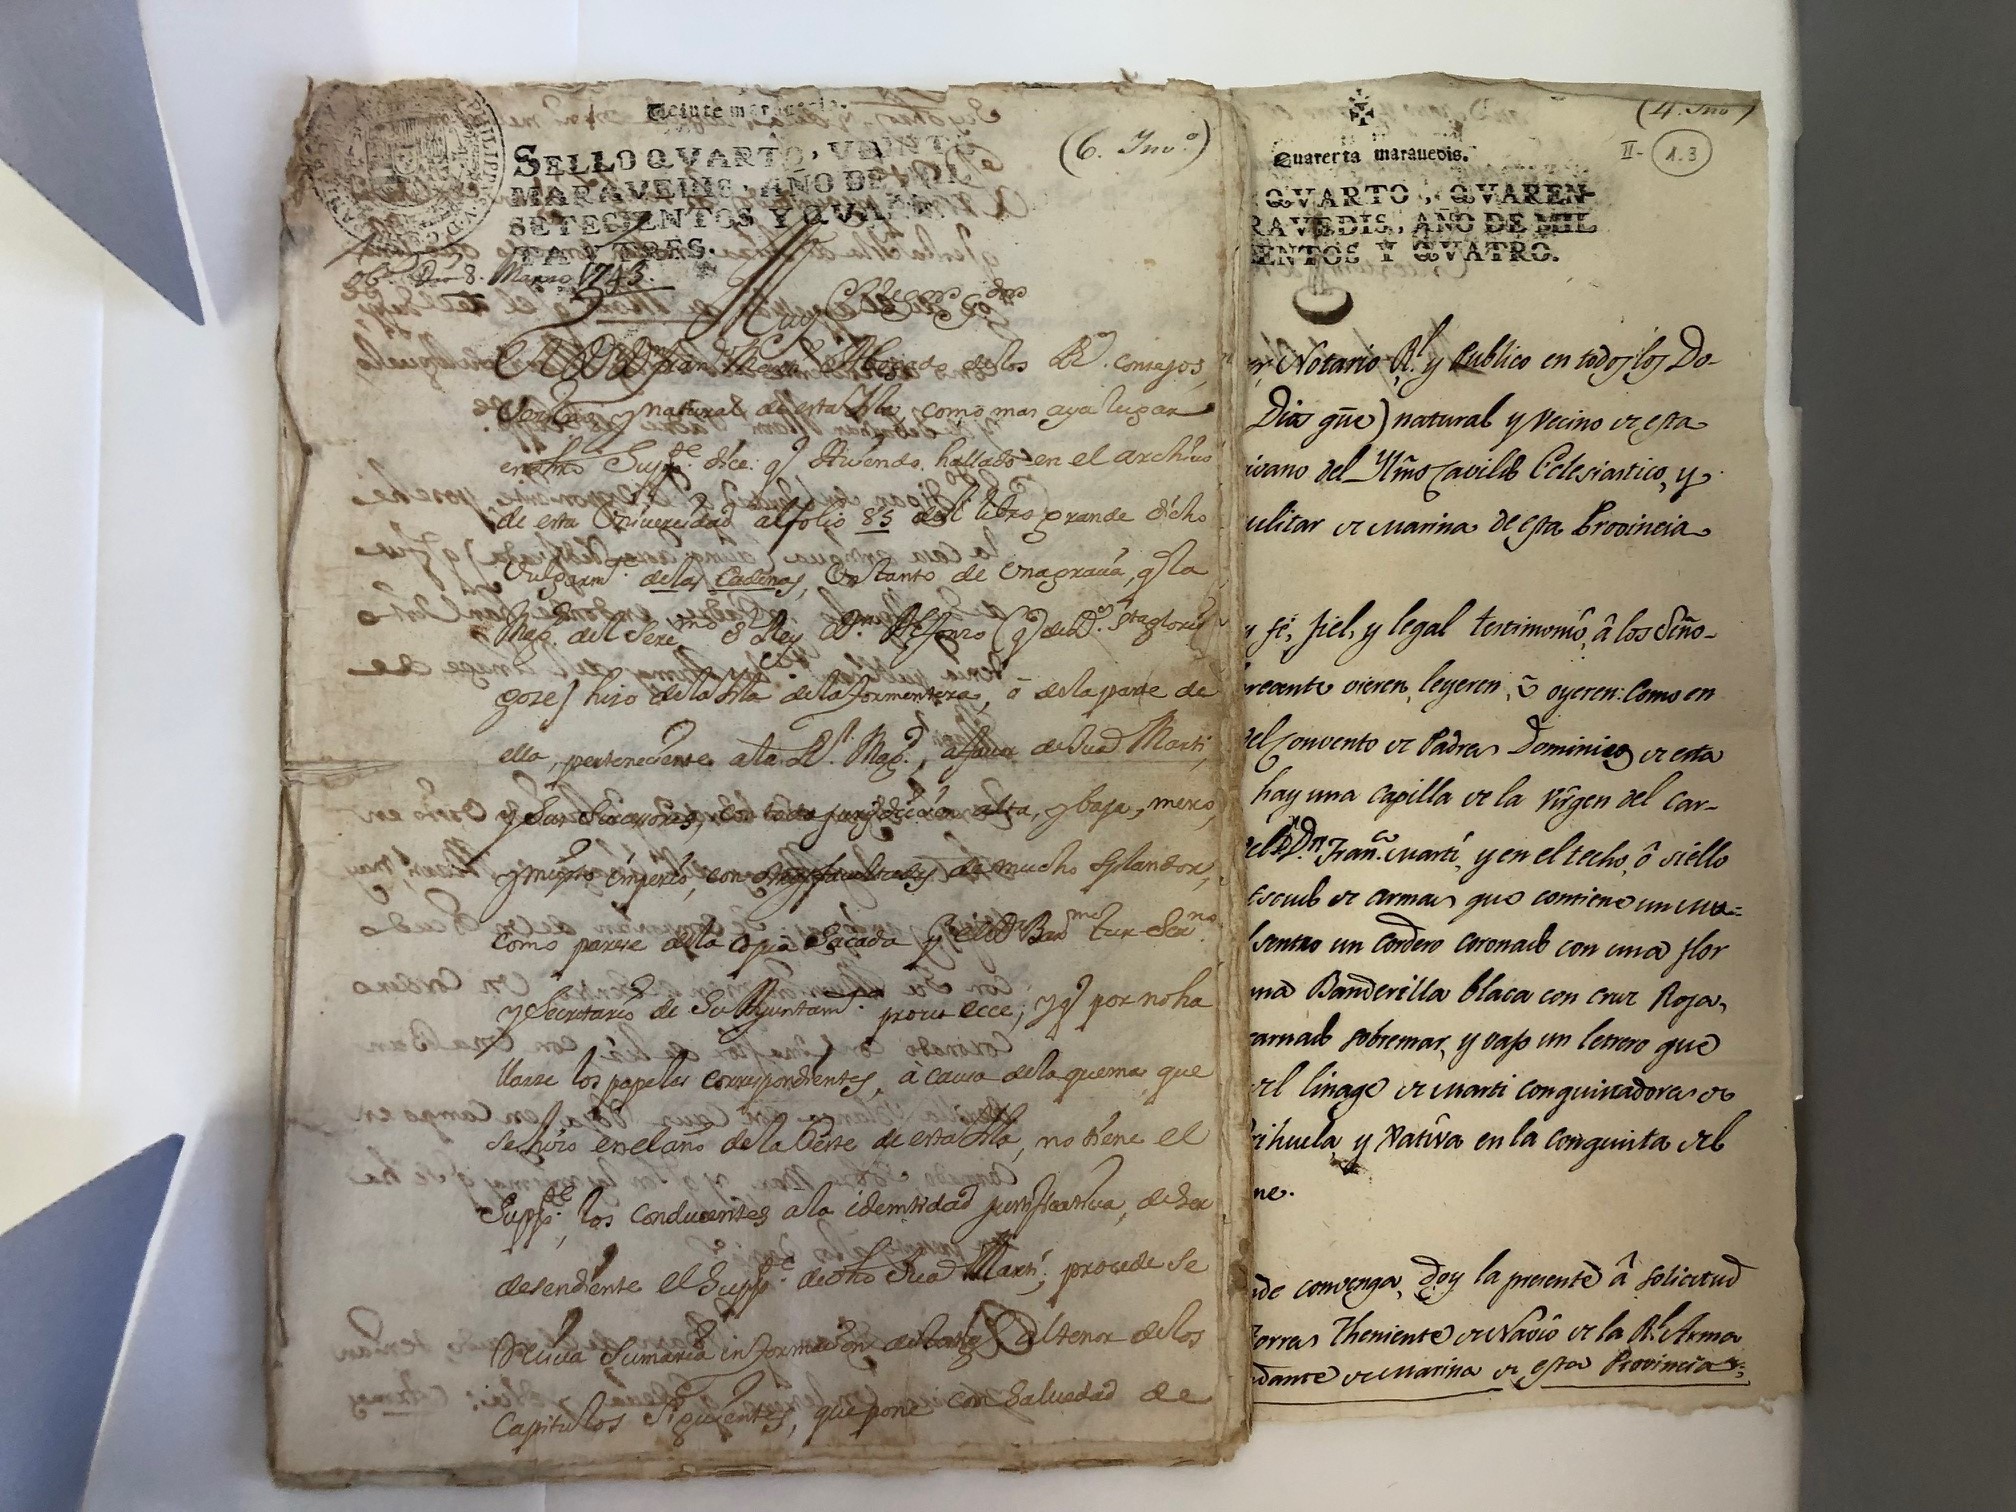 Veinte maravedis.
SELLO QVARTO, VEINTE
MARAVEDIS, AÑO DE MIL
SETECIENTOS Y QVAREN-
TA Y TRES.
(6. Inv.º)
8. Marzo 1743.
Muy
Abogado delos R.s consejos,
Vezino y natural de esta Isla, como mas aya lugar
en dro Supp.te dice: q̃ haviendo hallado en el archivo
de esta Universidad al folio 85 del libro grande dicho
vulgarm.te delas Cadenas, Un tanto de una gracia, q̃ la
Mag.d del Sere.mo S.r Rey D.n Alfonso (q̃ de D.s s.ta gloria
goze) hizo dela Isla dela formentera, ô dela parte de
ella, perteneciente ala R.l Mag.d, a favor de
Marti,
y Sus Sucesores, con toda jurisdiccion alta, y baja, mero,
y mixto imperio, con facultades de mucho esplandor,
como parese dela copia sacada
y Secretario de Su Ayuntam.to
y q̃ por no ha
llarse los papeles correspondientes, â causa dela quema, que
se hizo en el año dela Peste de esta Isla, no tiene el
Supp.te, los conducentes ala identidad justificativa, de ser
desendiente el Supp.te de dho
Marti; procede se
reciva Sumaria informacion de testigos al tenor delos
Capitulos siguientes, que pone con Salvedad de
(4. Inv.º)
II- 1.3
Quarenta maravedis.
QVARTO, QVAREN-
RAVEDIS, AÑO DE MIL
ENTOS Y QVATRO.
Notario R.l y Publico en todos los Do-
Dios gue) natural y Vecino de esta
ivano del Yllmo Cavildo Eclesiastico, y
militar de Marina de esta Provincia
fé, fiel, y legal testimonio, â los Seño-
resente vieren, leyeren, ô oyeren: Como en
del Convento de Padres Dominicos de esta
hay una capilla de la Virgen del Car-
D.n Fran.co Marti, y en el techo, ô siello
Escudo de Armas que contiene un
dentro un Cordero coronado con una flor
una Banderilla blaca con cruz Roja,
sobre mar, y vajo un letrero que
del linage de Marti conquistadores de
rihuela, y Xativa en la conquista del
ne.
nde convenga, doy la presente â solicitud
Torres Theniente de Navio de la R.l Arma
dante de Marina de esta Provincia